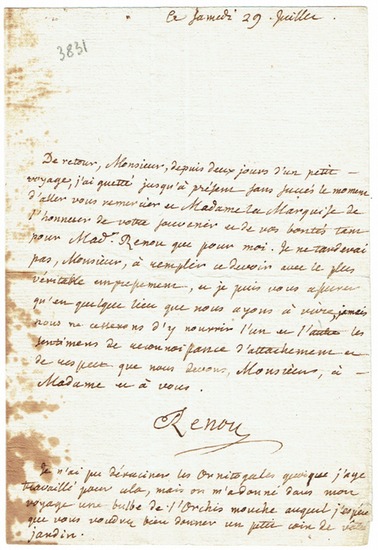 Ce Samedi 29 Juillet.
3831
De retour, Monsieur, depuis deux jours d'un petit
voyage, j'ai guetté jusqu'à présent sans succès le moment
d'aller vous remercier et Madame la Marquise de
l'honneur de votre souvenir et de vos bontés tant
pour Made. Renou que pour moi. Je ne tarderai
pas, Monsieur, à remplir ce devoir avec le plus
véritable empressement, et je puis vous assurer
qu'en quelque lieu que nous ayons à vivre, jamais
nous ne cesserons d'y nourrir l'un et l'autre les
sentimens de reconnoissance d'attachement et
de respect que nous devons, Monsieur, à
Madame et à vous.
Renou
Je n'ai pu déraciner les Ornitogales quoique j'aye
travaillé pour cela, mais on m'a donné dans mon
voyage une bulbe de l'Orchis mouche auquel j'espére
que vous voudrez bien donner un petit coin de vôtre
jardin.